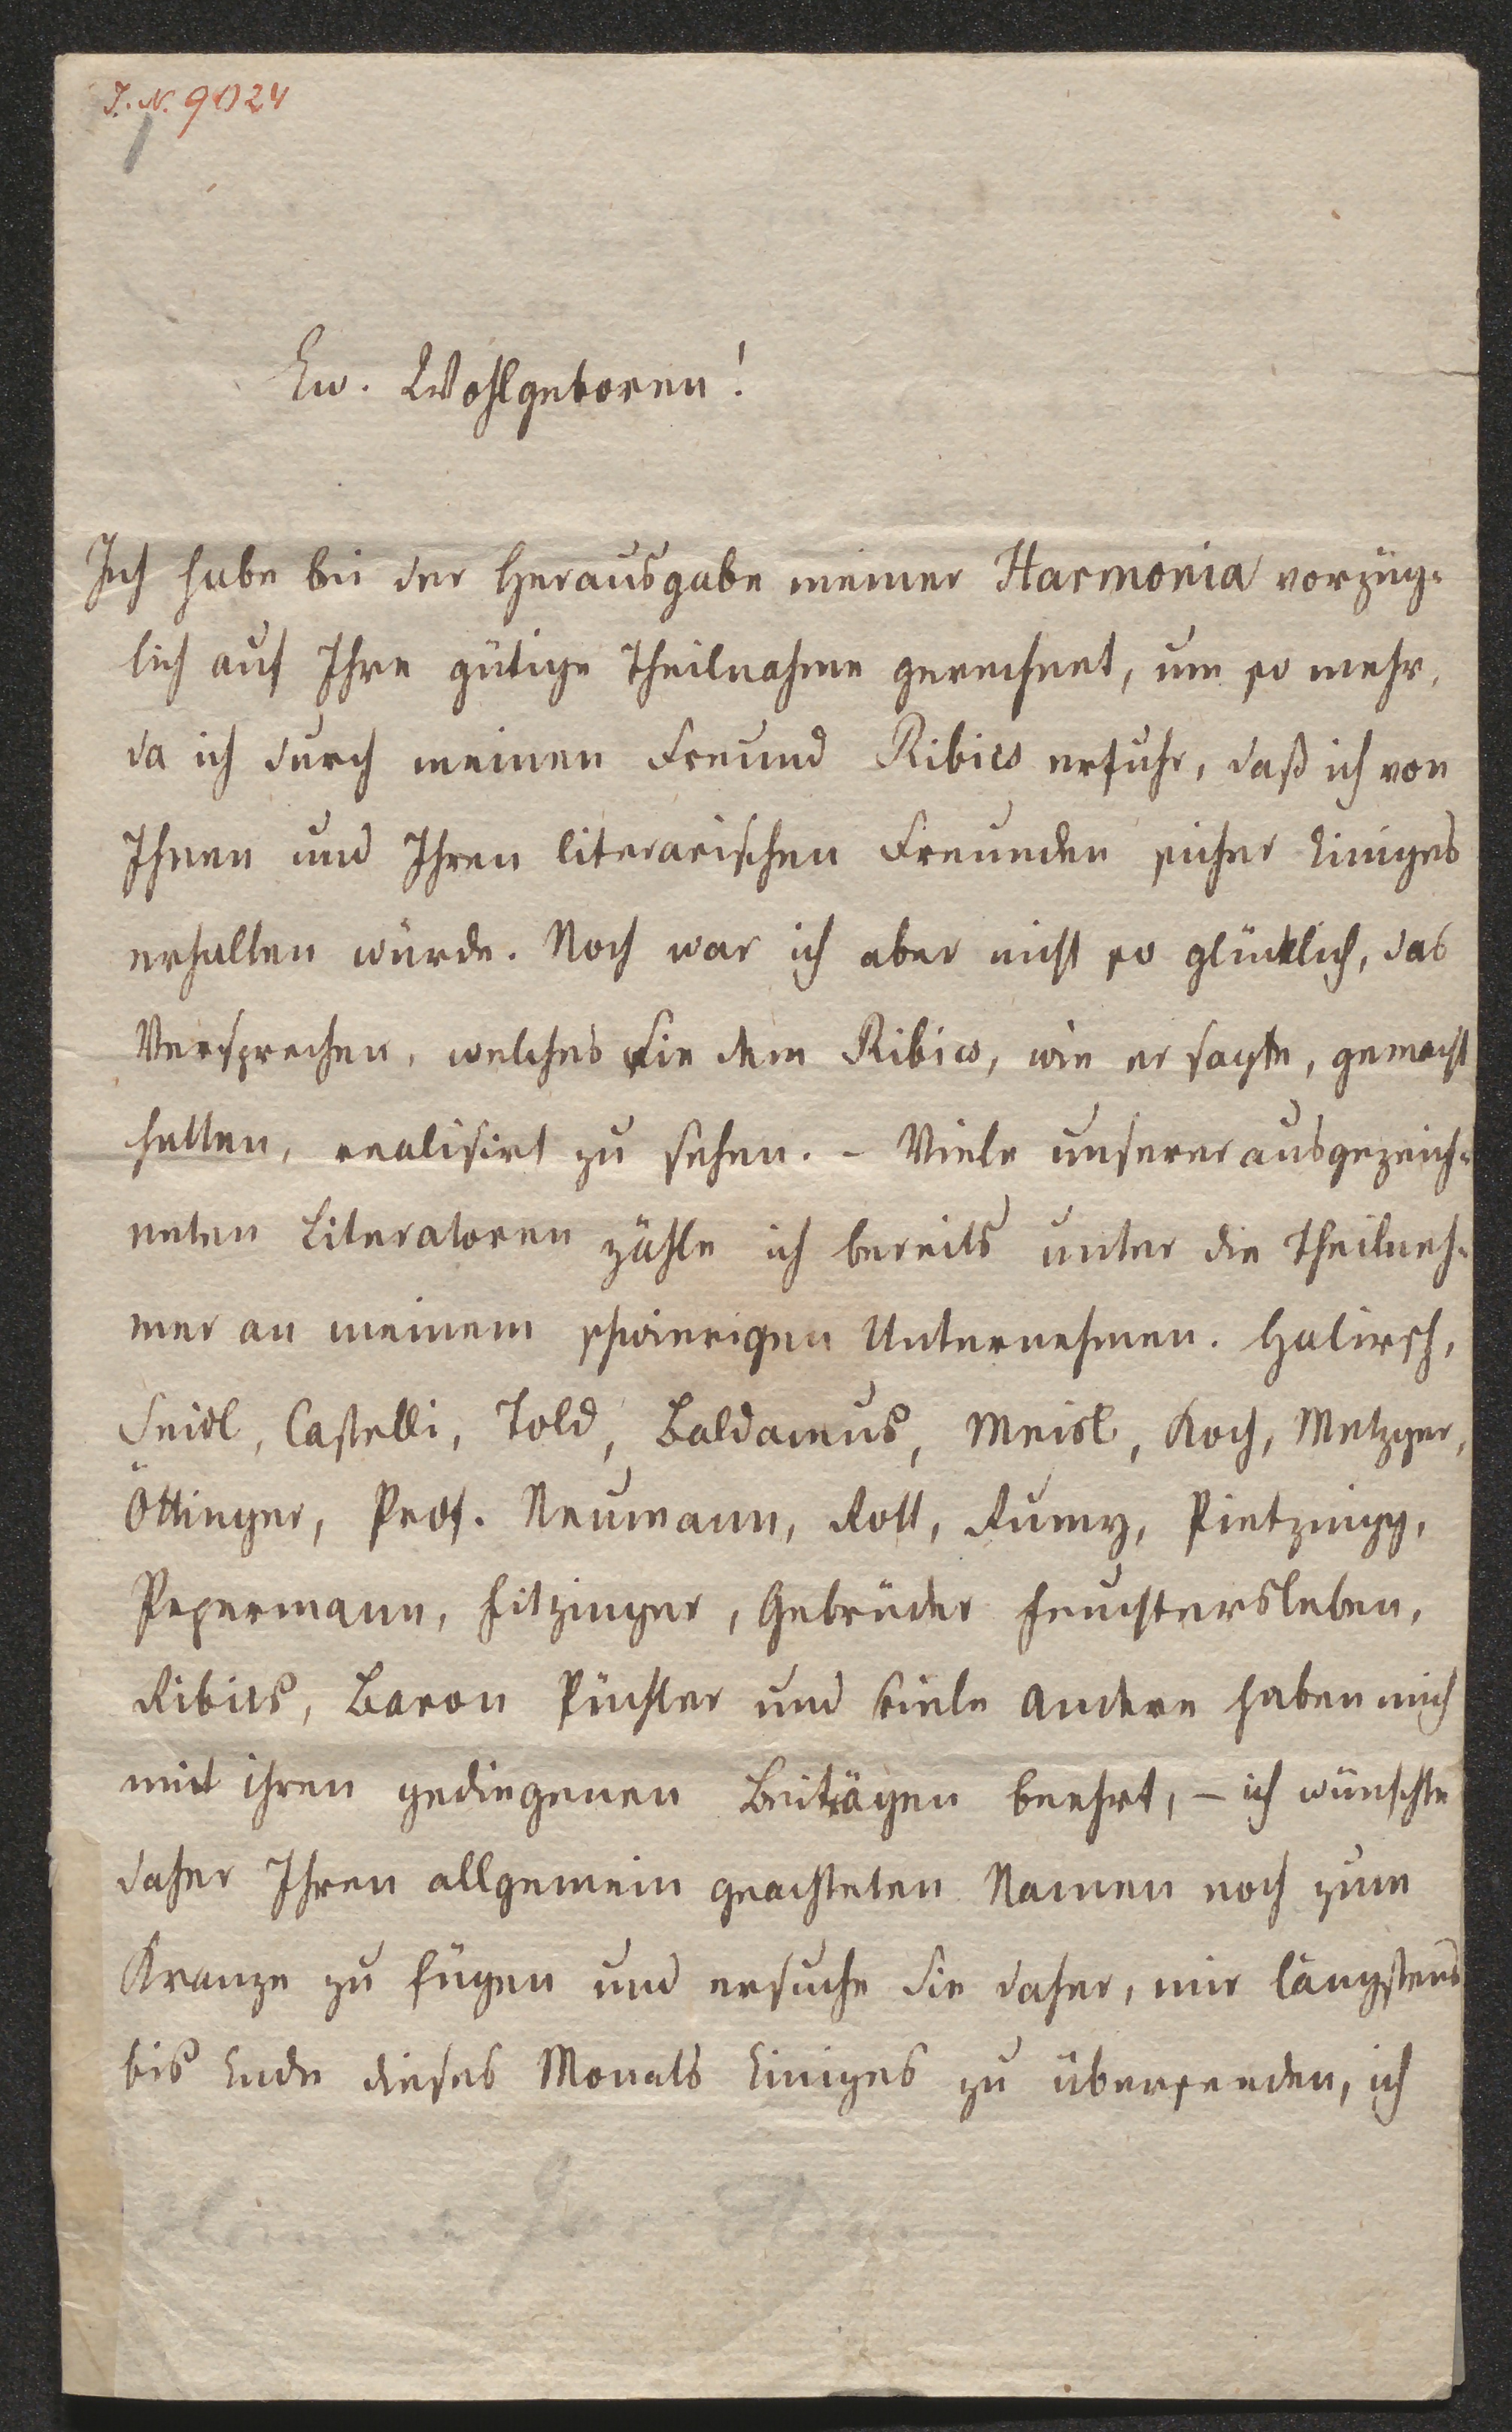 I. N. 9024
Ew. Wohlgeboren!
Ich habe bei der Herausgabe meiner Harmonia vorzüg-
lich auf Ihre gütige Theilnahme gerechnet, um so mehr,
da ich durch meinen Freund Ribics erfuhr, daß ich von
Ihnen und Ihren literarischen Freunden sicher Einiges
erhalten würde. Noch war ich aber nicht so glücklich, das
Versprechen, welches Sie dem Ribics, wie er sagte, gemacht
hatten, realisirt zu sehen. – Viele unserer ausgezeich-
neten Literatoren zähle ich bereits unter die Theilneh-
mer an meinem schwierigen Unternehmen. Halirsch,
Seidl, Castelli, Told, Baldamus, Meisl, Koch, Metzger,
Öttinger, Prof. Neumann, Rott, Rumy, Pietznigg,
Pepermann, Fitzinger, Gebrüder Feuchtersleben,
Ribics, Baron Püchler und viele Andere haben mich
mit ihren gediegenen Beiträgen beehrt, – ich wünschte
daher Ihren allgemein geachteten Namen noch zum
Kranze zu fügen und ersuche Sie daher, mir längstens
bis Ende dieses Monats Einiges zu übersenden, ich